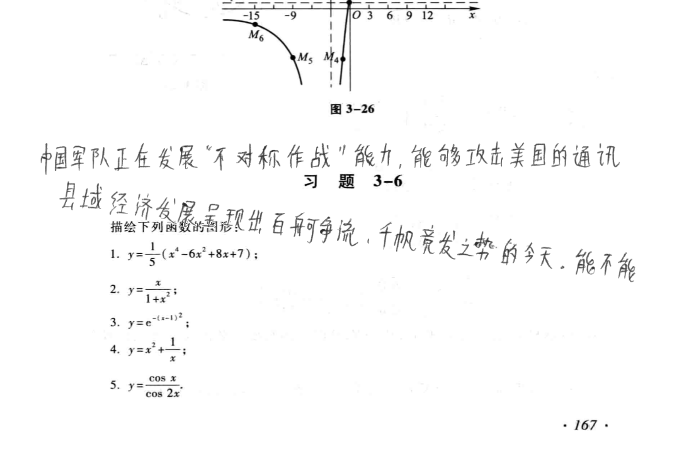 -15 -9 O 3 6 9 12 x
M₆
M₅ M₄
图 3-26
中国军队正在发展“不对称作战”能力,能够攻击美国的通讯
习 题 3-6
县域经济发展呈现出百舸争流、千帆竞发之势的今天。能不能
描绘下列函数的图形:
1. y=\frac{1}{5}(x⁴-6x²+8x+7);
2. y=\frac{x}{1+x²};
3. y=e^{-(x-1)²};
4. y=x²+\frac{1}{x};
5. y=\frac{cos x}{cos 2x}.
· 167 ·